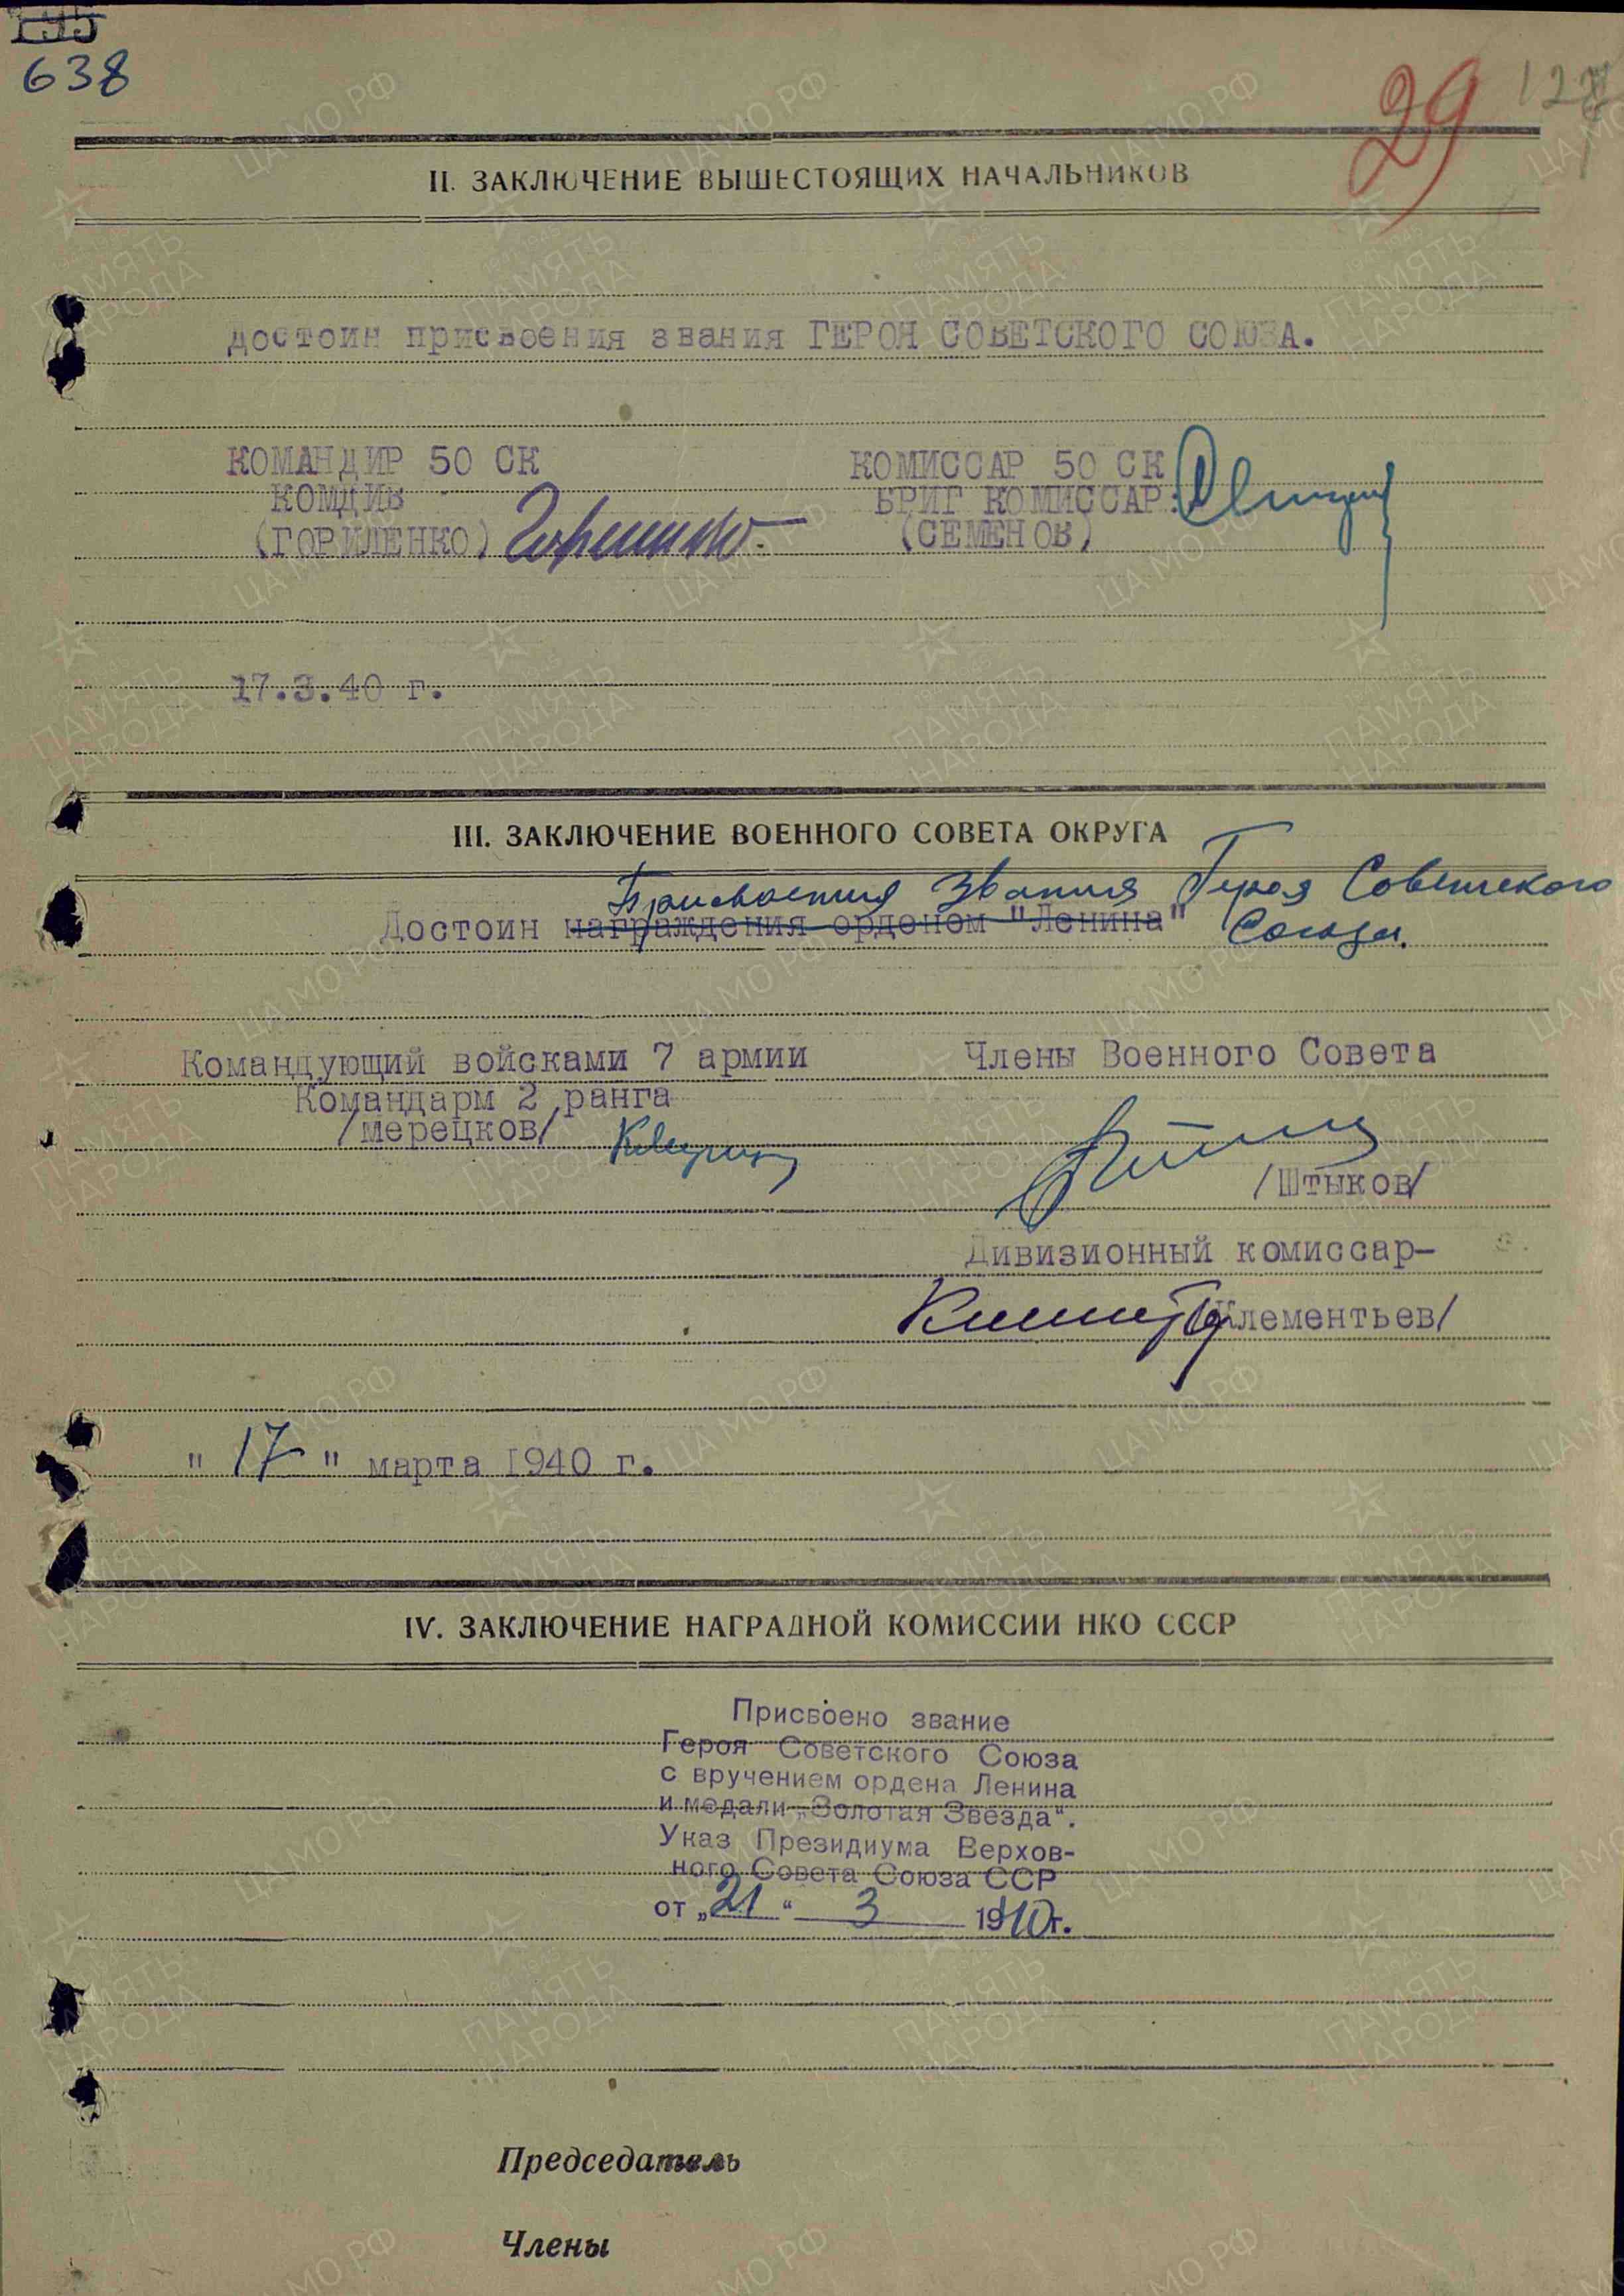 638
29
II. ЗАКЛЮЧЕНИЕ ВЫШЕСТОЯЩИХ НАЧАЛЬНИКОВ
достоин присвоения звания ГЕРОЯ СОВЕТСКОГО СОЮЗА.
КОМАНДИР 50 СК
КОМДИВ
(ГОРИЛЕНКО)
КОМИССАР 50 СК
БРИГ КОМИССАР:
(СЕМЕНОВ)
17.3.40 г.
III. ЗАКЛЮЧЕНИЕ ВОЕННОГО СОВЕТА ОКРУГА
Присвоения звания Героя Советского
Достоин награждения орденом "Ленина" Союза.
Командующий войсками 7 армии
Командарм 2 ранга
/мерецков/
Члены Военного Совета
/Штыков/
Дивизионный комиссар-
/Клементьев/
" 17 " марта 1940 г.
IV. ЗАКЛЮЧЕНИЕ НАГРАДНОЙ КОМИССИИ НКО СССР
Присвоено звание
Героя Советского Союза
с вручением ордена Ленина
и медали „Золотая Звезда“.
Указ Президиума Верхов-
ного Совета Союза ССР
от „21“ 3 1940г.
Председатель
Члены
ЦА МО РФ
ПАМЯТЬ
НАРОДА